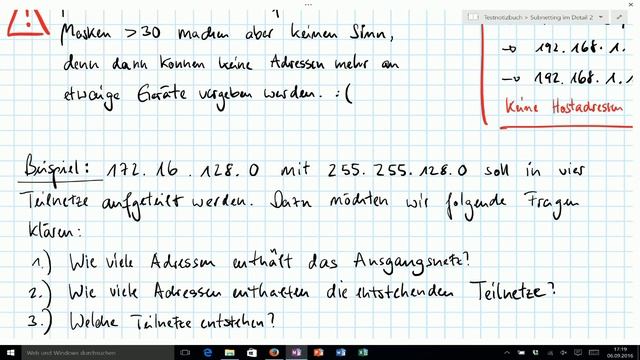 Testnotizbuch > Subnetting im Detail 2
Masken > 30 machen aber keinen Sinn,
denn dann können keine Adressen mehr an
etwaige Geräte vergeben werden. :(
→ 192.168.1.
→ 192.168.1.
Keine Hostadressen
Beispiel: 172.16.128.0 mit 255.255.128.0 soll in vier
Teilnetze aufgeteilt werden. Dazu möchten wir folgende Fragen
klären:
1.) Wie viele Adressen enthält das Ausgangsnetz?
2.) Wie viele Adressen enthalten die entstehenden Teilnetze?
3.) Welche Teilnetze entstehen?
Web und Windows durchsuchen
17:19
06.09.2016